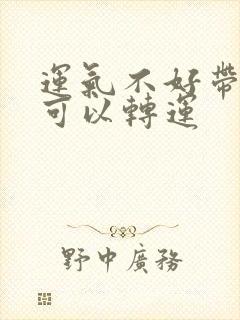 運氣不好帶
可以轉運
野中廣務